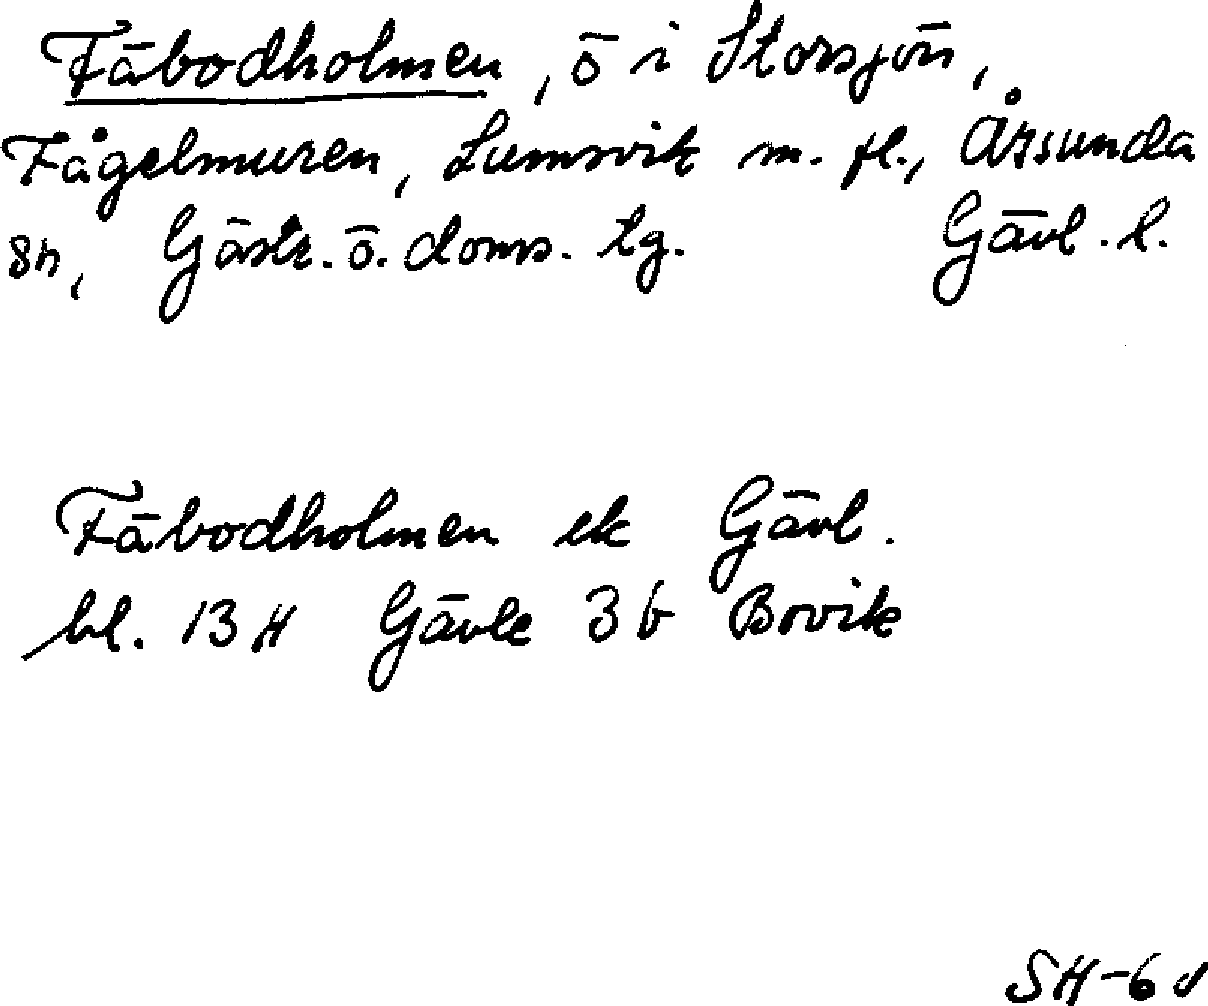 Fäbodholmen, ö i Storsjön,
Fågelmuren, Lumsvik m. fl., Årsunda
sn, Gästr. ö. doms. tg. Gävl. l.
Fäbodholmen ek Gävl.
bl. 13H Gävle 3b Bovik